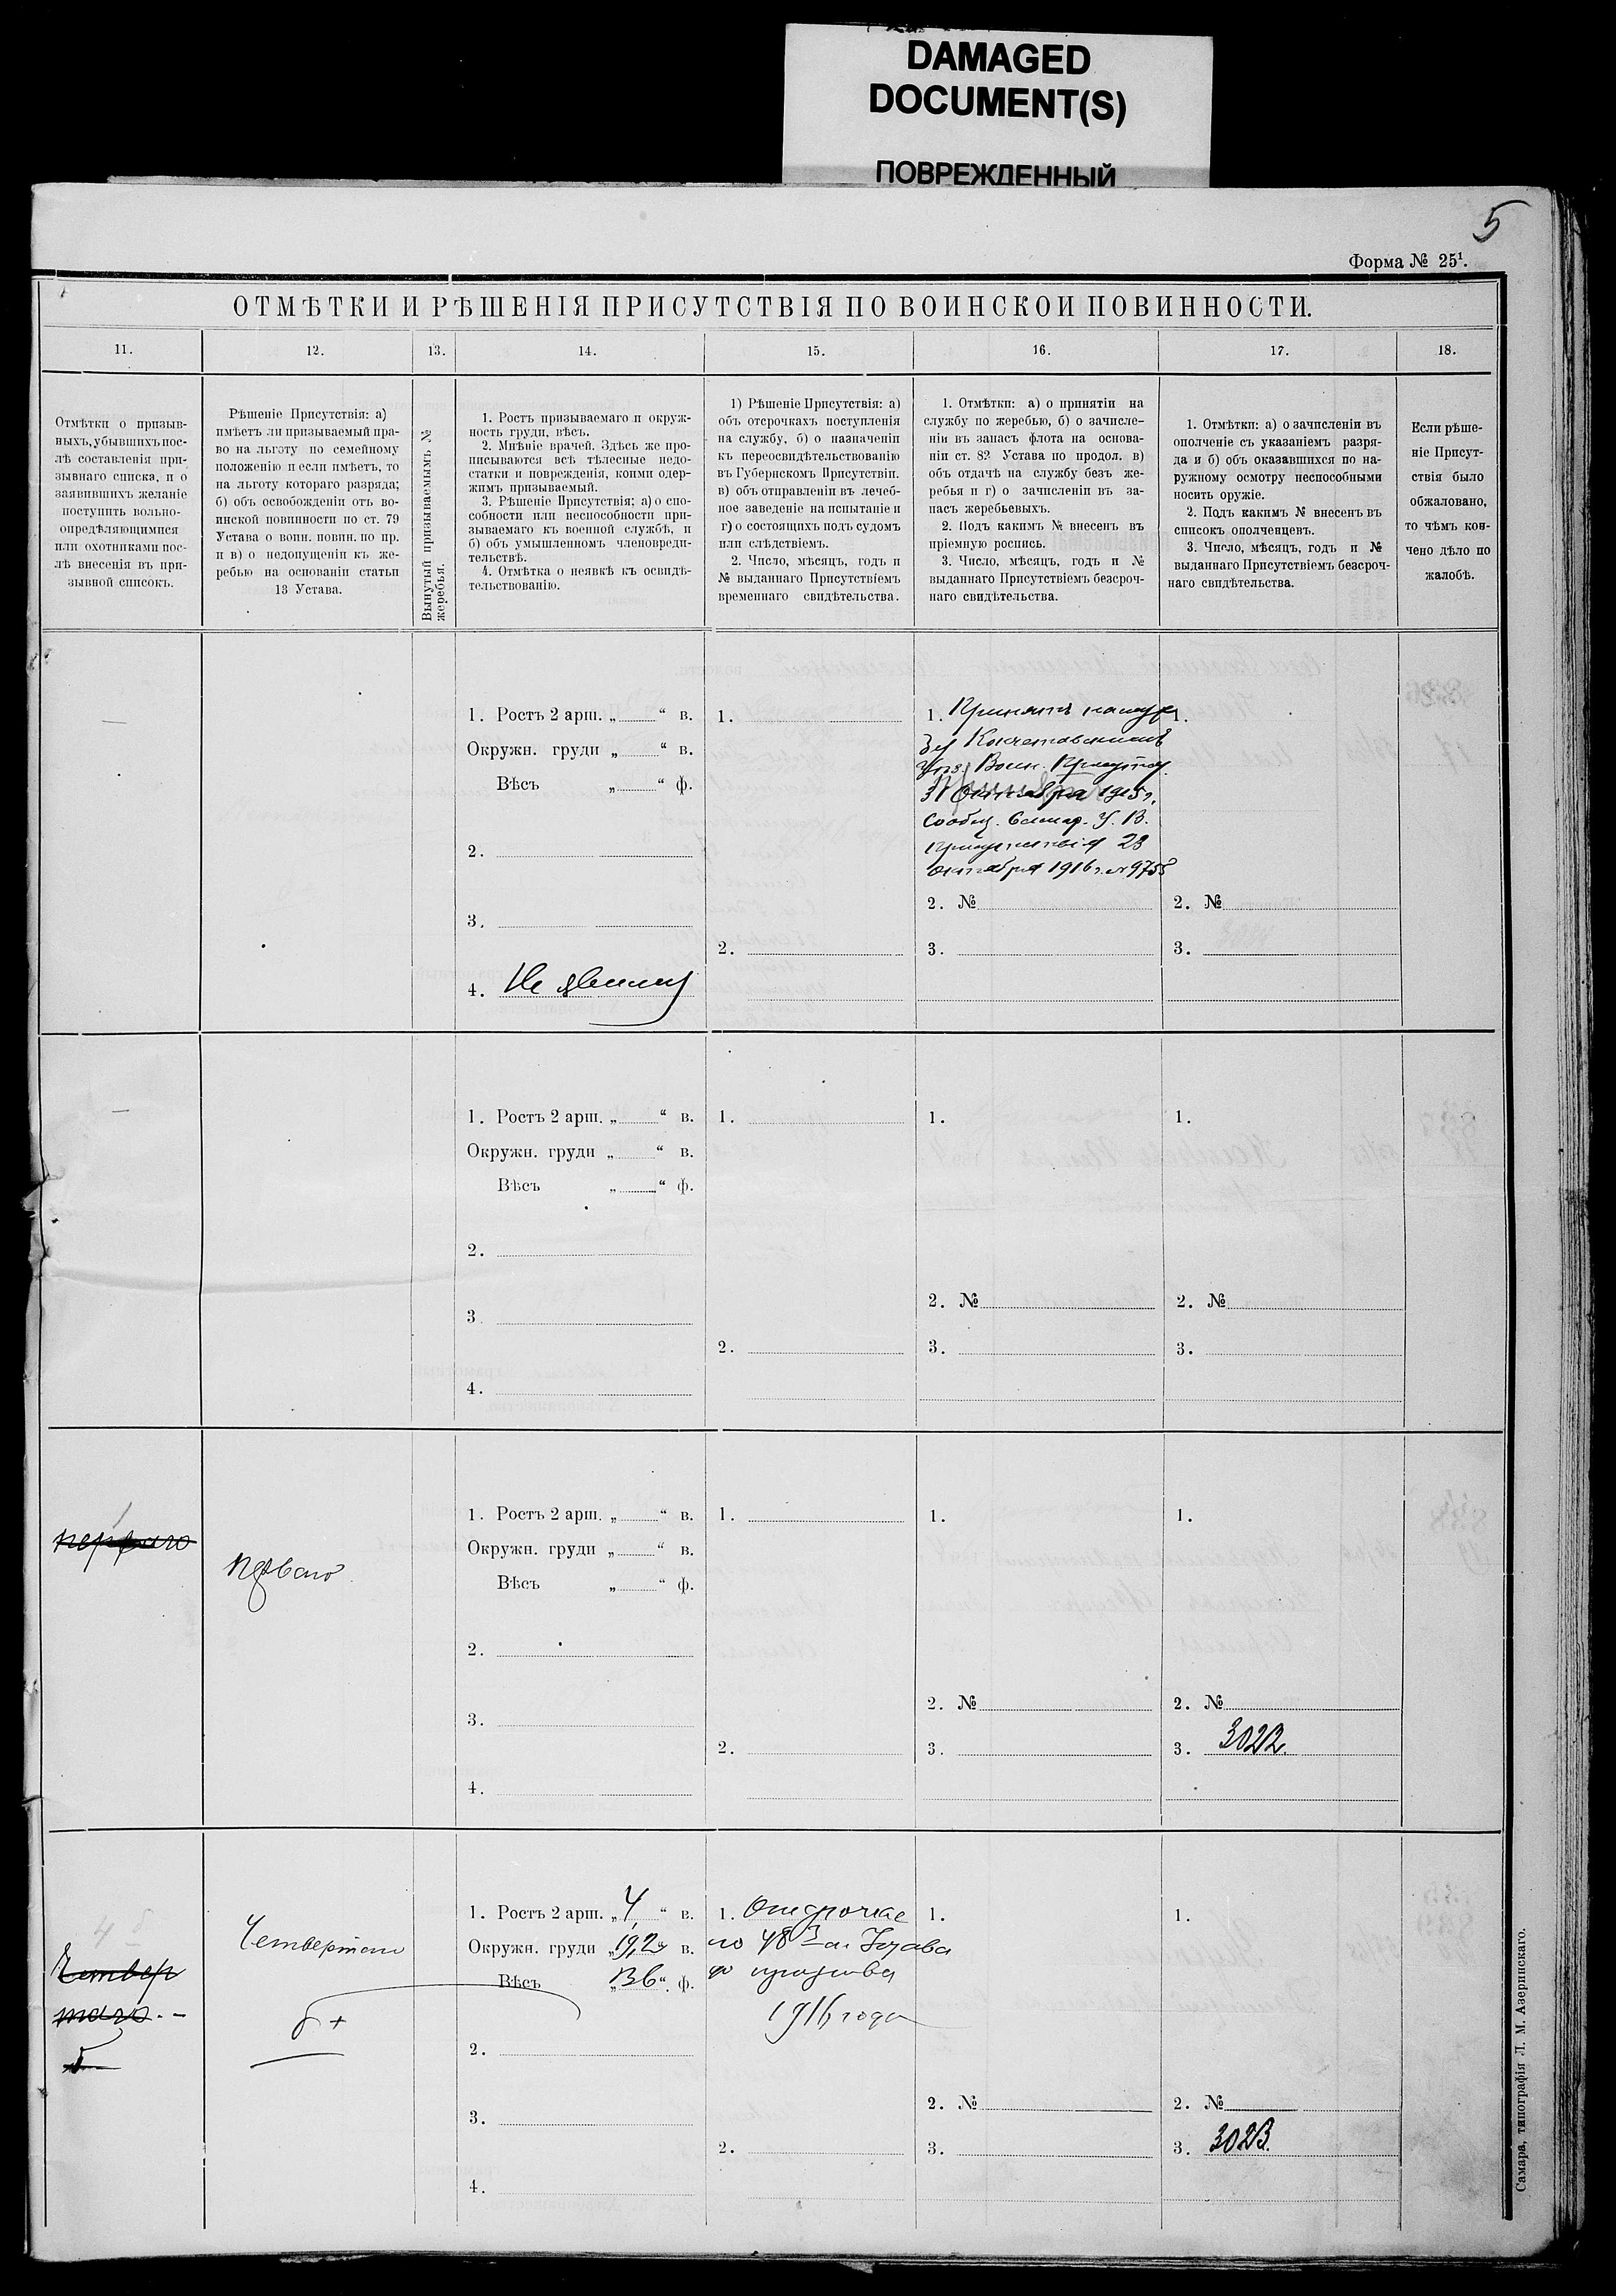 DAMAGED
DOCUMENT(S)
ПОВРЕЖДЕННЫЙ
5
Форма № 25¹.
ОТМѢТКИ И РѢШЕНІЯ ПРИСУТСТВІЯ ПО ВОИНСКОИ ПОВИННОСТИ.
11.
12.
13.
14.
15.
16.
17.
18.
Отмѣтки о призыв-
ныхъ, убывшихъ пос-
лѣ составленія при-
зывнаго списка, и о
заявившихъ желаніе
поступить вольно-
опредѣляющимися
или охотниками пос-
лѣ внесенія въ при-
зывной списокъ.
Рѣшеніе Присутствія: а)
имѣетъ ли призываемый пра-
во на льготу по семейному
положенію и если имѣетъ, то
на льготу котораго разряда;
б) объ освобожденіи отъ во-
инской повинности по ст. 79
Устава о воин. повин. по пр.
и в) о недопущеніи къ же-
ребью на основаніи статьи
13 Устава.
Вынутый призываемымъ №
жеребья.
1. Ростъ призываемаго и окруж-
ность груди, вѣсъ.
2. Мнѣніе врачей. Здѣсь же про-
писываются всѣ тѣлесные недо-
статки и поврежденія, коими одер-
жимъ призываемый.
3. Рѣшеніе Присутствія; а) о спо-
собности или неспособности при-
зываемаго къ военной службѣ, и
б) объ умышленномъ членовреди-
тельствѣ.
4. Отмѣтка о неявкѣ къ освидѣ-
тельствованію.
1) Рѣшеніе Присутствія: а)
объ отсрочкахъ поступленія
на службу, б) о назначеніи
къ переосвидѣтельствованію
въ Губернскомъ Присутствіи.
в) объ отправленіи въ лечеб-
ное заведеніе на испытаніе и
г) о состоящихъ подъ судомъ
или слѣдствіемъ.
2. Число, мѣсяцъ, годъ и
№ выданнаго Присутствіемъ
временнаго свидѣтельства.
1. Отмѣтки: а) о принятіи на
службу по жеребью, б) о зачисле-
ніи въ запасъ флота на основа-
ніи ст. 82 Устава по продол. в)
объ отдачѣ на службу безъ же-
ребья и г) о зачисленіи въ за-
пасъ жеребьевыхъ.
2. Подъ какимъ № внесенъ въ
пріемную роспись.
3. Число, мѣсяцъ, годъ и №
выданнаго Присутствіемъ безсроч-
наго свидѣтельства.
1. Отмѣтки: а) о зачисленіи въ
ополченіе съ указаніемъ разря-
да и б) объ оказавшихся по на-
ружному осмотру неспособными
носить оружіе.
2. Подъ какимъ № внесенъ въ
списокъ ополченцевъ.
3. Число, мѣсяцъ, годъ и №
выданнаго Присутствіемъ безсроч-
наго свидѣтельства.
Если рѣше-
ніе Присут-
ствія было
обжаловано,
то чѣмъ кон-
чено дѣло по
жалобѣ.
1. Ростъ 2 арш. „ “ в.
Окружн. груди „ “ в.
Вѣсъ „ “ ф.
2.
3.
4. Не явился
1.
2.
1. Принятъ на служ
бу Кокчетавскимъ
Уѣз. Воин. Присутст.
31 Октября 1915 г.
Сообщ. Самар. У. В.
Присутствія 23
октября 1916 г. №9755
2. №
3.
1.
2. №
3.
1. Ростъ 2 арш. „ “ в.
Окружн. груди „ “ в.
Вѣсъ „ “ ф.
2.
3
4.
1.
2.
1.
2. №
3.
1.
2. №
3.
перваго
перваго
1. Ростъ 2 арш. „ “ в.
Окружн. груди „ “ в.
Вѣсъ „ “ ф.
2.
3.
4.
1.
2.
1.
2. №
3.
1.
2. №
3. 3022.
4 б
Четвер
таго. -
б
Четвертаго
б +
1. Ростъ 2 арш. „ 4 “ в.
Окружн. груди „ 19,2 “ в.
Вѣсъ „ 136 “ ф.
2.
3.
4.
1. Отсрочка
по 48³ ст. Устава
до призыва
1916 года
2.
1.
2. №
3.
1.
2. №
3. 3023.
Самара, типографія Л. М. Азеринскаго.